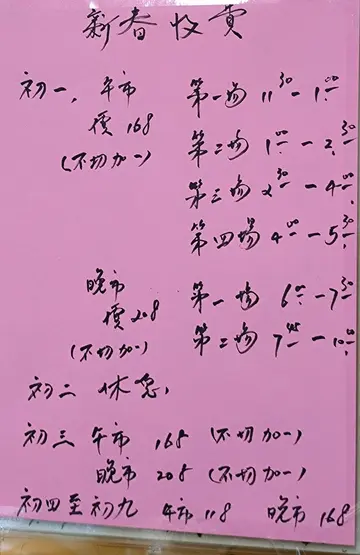 新春收費
初一，午市 第一場 11³⁰ - 1⁰⁰
價 168 第二場 1⁰⁰ - 2³⁰
(不切加一) 第三場 2³⁰ - 4⁰⁰
第四場 4⁰⁰ - 5³⁰
晚市 第一場 6⁰⁰ - 7³⁰
價 208 第二場 7⁴⁵ - 10⁰⁰
(不切加一)
初二 休息，
初三 午市 168 (不切加一)
晚市 208 (不切加一)
初四至初九 午市 118 晚市 168